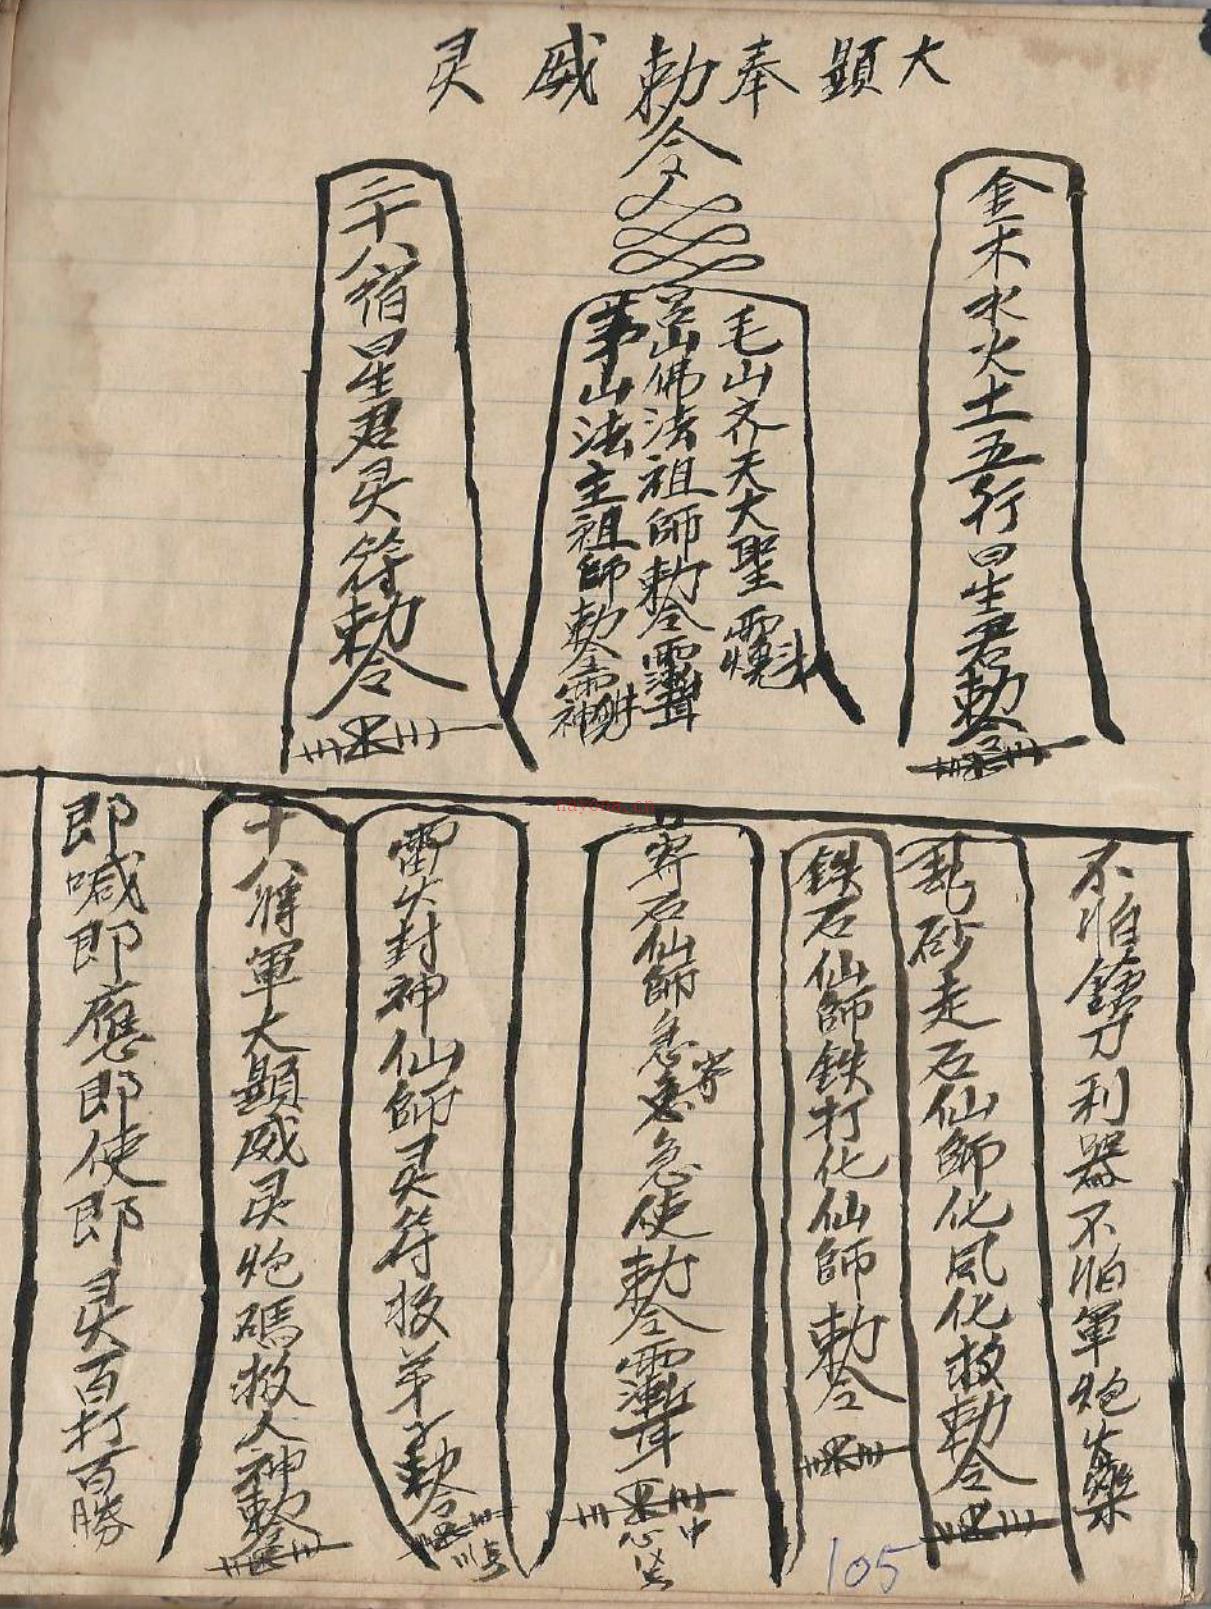 大顯奉勅威灵
令
金木水火土五行星君勅令
毛山齐天大聖
山佛法祖師勅令
茅山法主祖師勅令
二十八宿星君灵符勅令
不怕刀利器不怕軍炮火藥
乱砂走石仙師化風化救勅令
鉄石仙師鉄打化仙師勅令
石仙師急急急使勅令
雷火封神仙師灵符救弟子勅令
十八將軍大顯威灵炮碼救人神勅令
即喊即應即使即灵百打百勝
nayona.cn
105